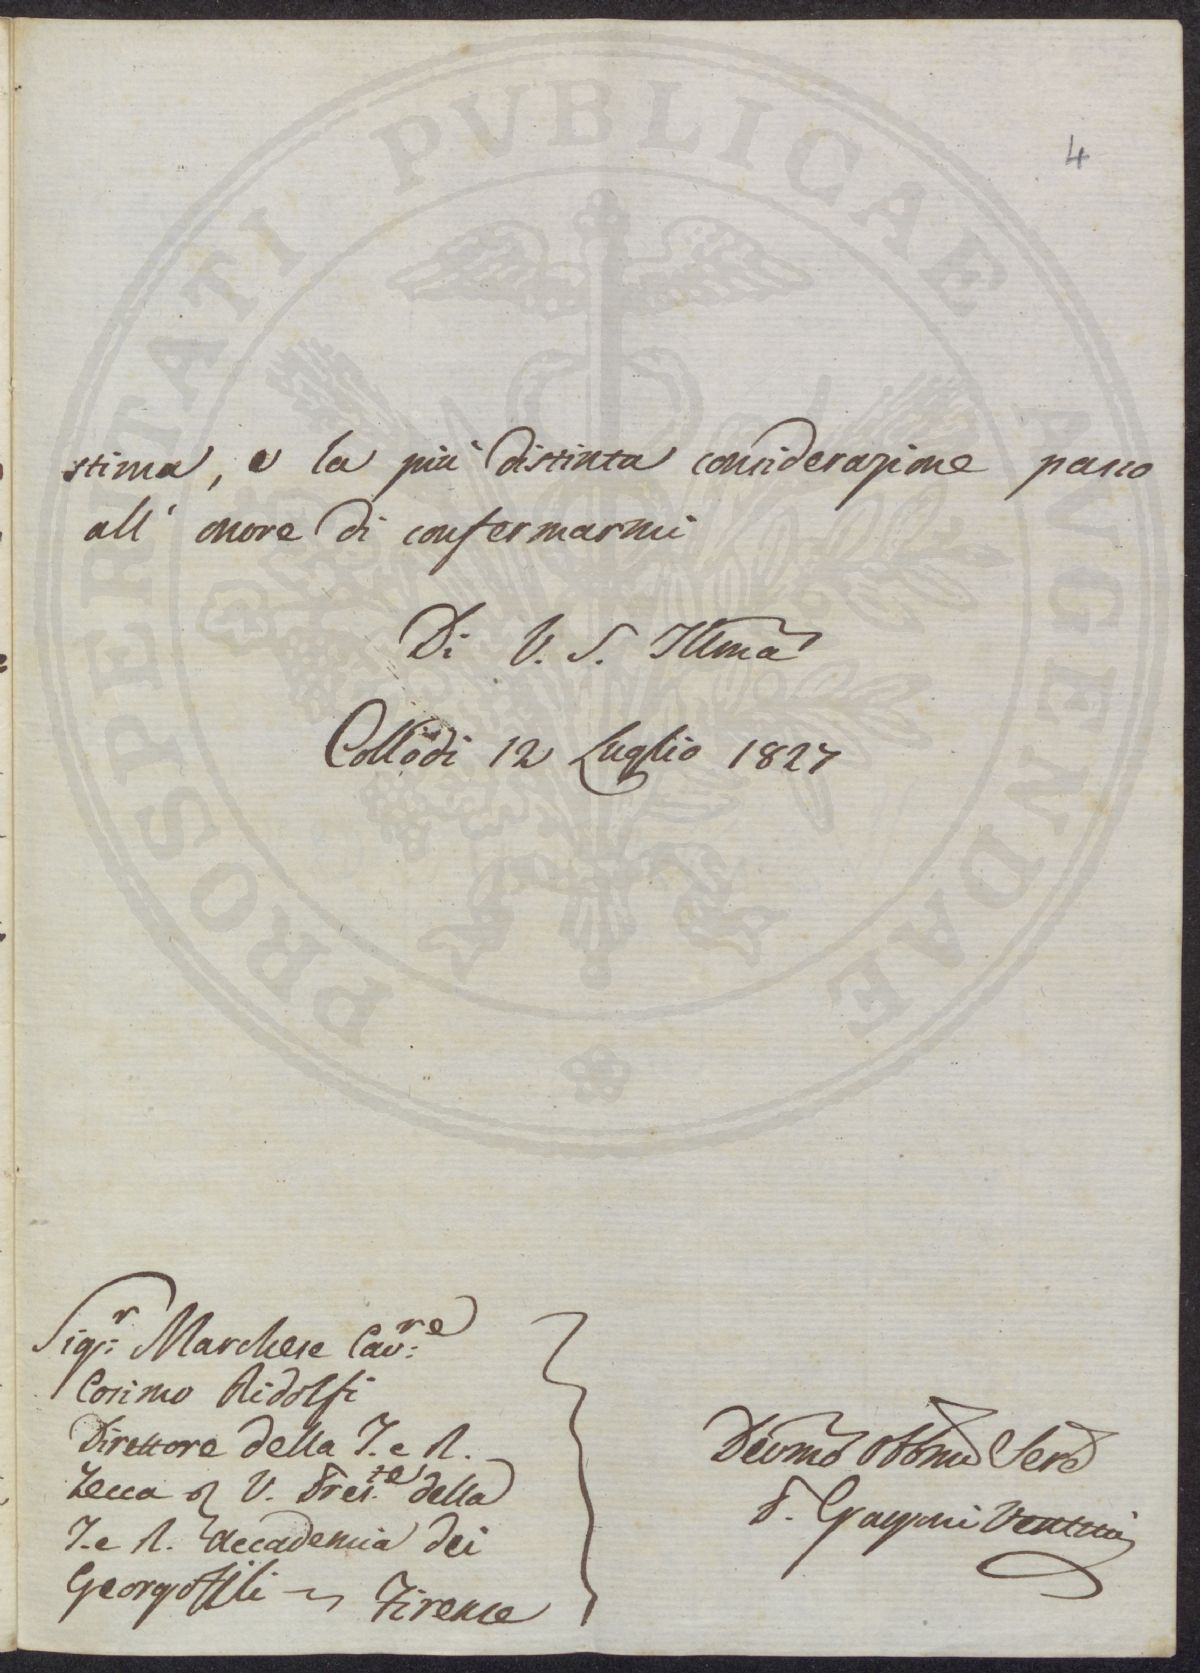 4
PROSPERITATI PUBLICAE AUGENDAE
stima, e la più distinta considerazione passo
all' onore di confermarmi
Di V. S. Illma
Collodi 12 Luglio 1827
Sigr: Marchese Cavre:
Cosimo Ridolfi
Direttore della I. e R.
Zecca e V. Preste della
I. e R. Accademia dei
Georgofili Firenze
Devmo Obbmo Serv